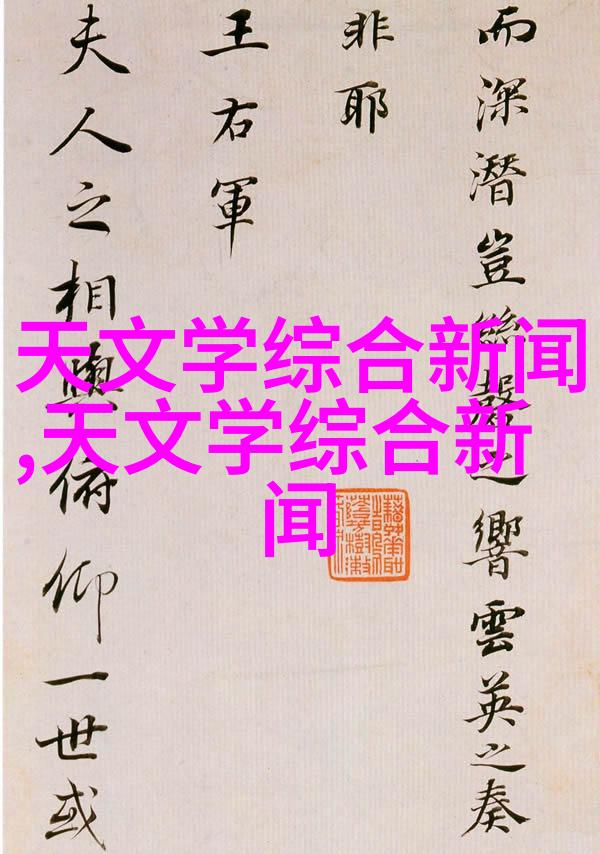 而深潛豈絲磬之響雲英之奏
非耶
王右軍
夫人之相與俯仰一世或
天文学综合新闻
,天文学综合新
闻